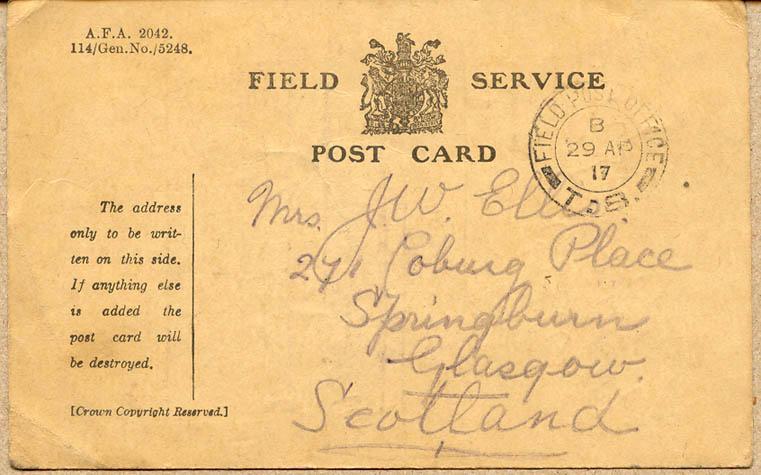 A.F.A. 2042.
114/Gen.No./5248.
FIELD SERVICE
POST CARD
FIELD POST OFFICE
B
29 AP
17
T.8.
The address
only to be writ-
ten on this side.
If anything else
is added the
post card will
be destroyed.
[Crown Copyright Reserved.]
Mrs. J.W. Ellis.
271 Coburg Place
Springburn
Glasgow.
Scotland